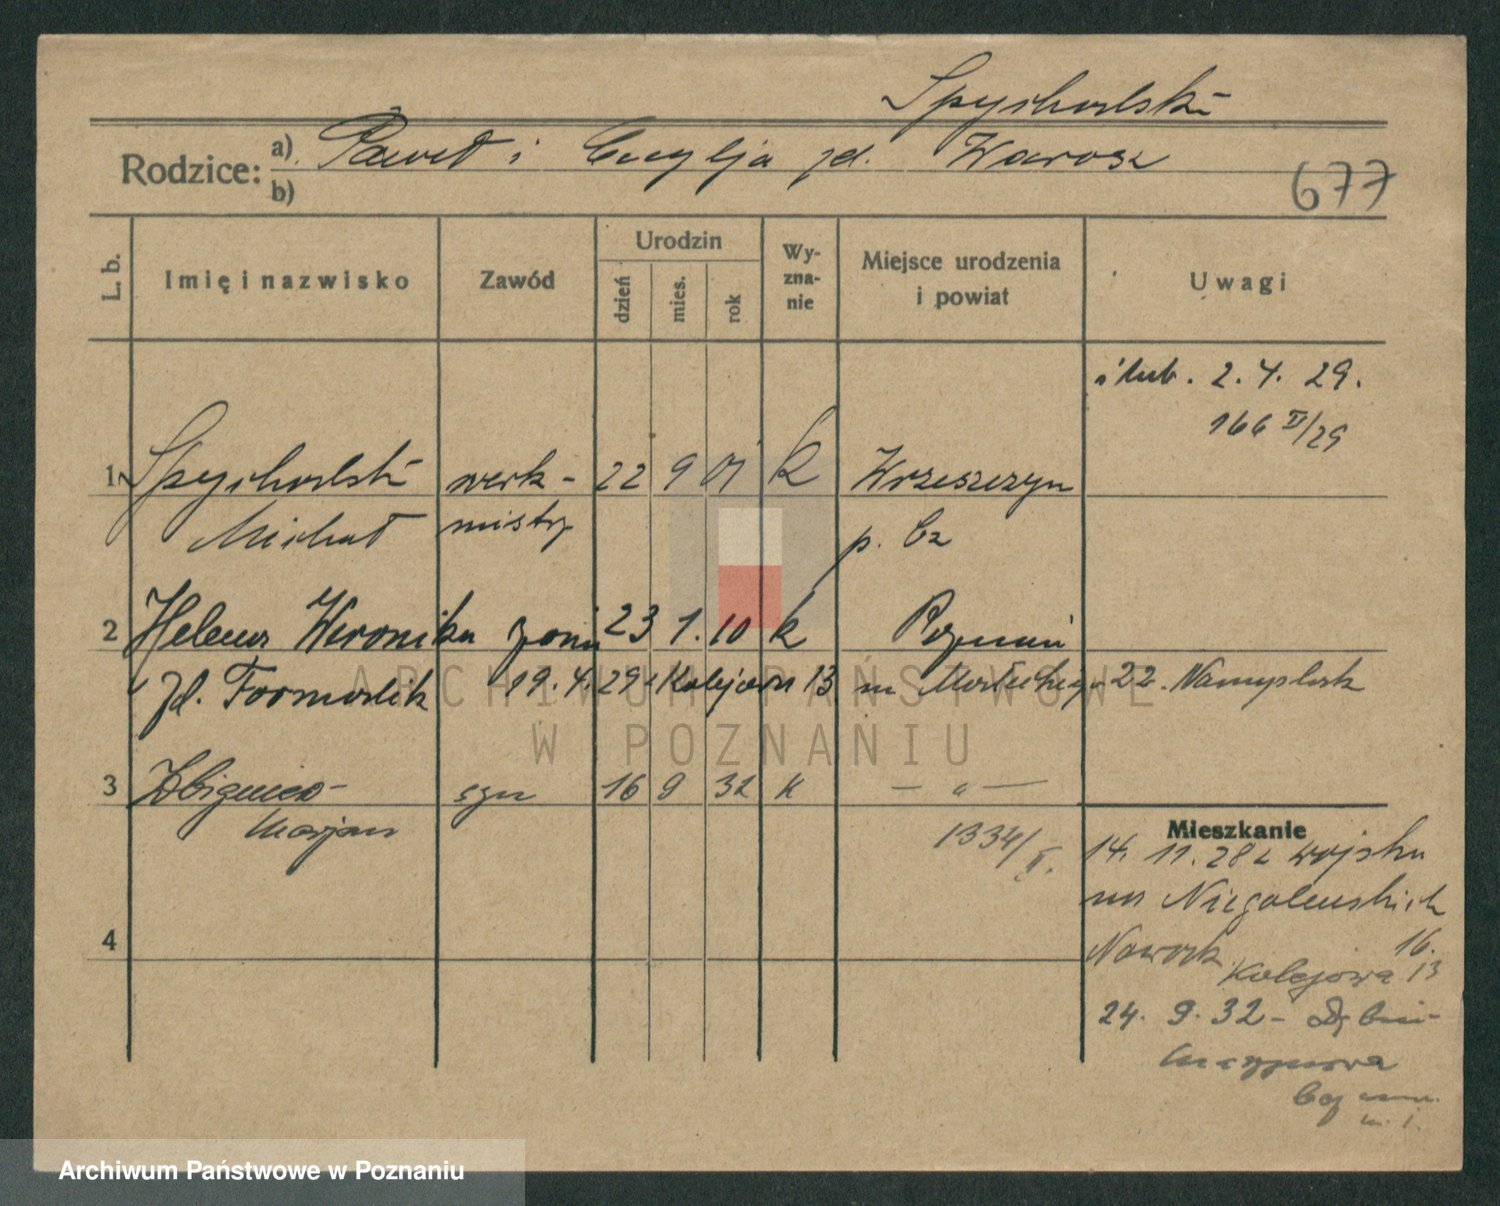 Spychalski
Rodzice: a) Paweł i Cecylja zd. Warosz
b)
677
L. b. Imię i nazwisko Zawód Urodzin dzień mies. rok Wy-zna-nie Miejsce urodzenia i powiat Uwagi
ślub. 2. 4. 29.
166 II/29
1 Spychalski werk- 22 9 01 k Wrzeszczyn
Michał mistrz p. Cz
2 Helena Weronika żona 23 1. 10 k Poznań
zd. 19. 4. 29 Kolejowa 13 m 22
3 Zbigniew syn 16 9 32 k — „ —
Marjan 1334/II.
Mieszkanie
14. 11. 28 z wojska
na Niegolewskich
Nowak 16.
Kolejowa 13
4
24. 9. 32 -
ARCHIWUM PAŃSTWOWE
W POZNANIU
Archiwum Państwowe w Poznaniu